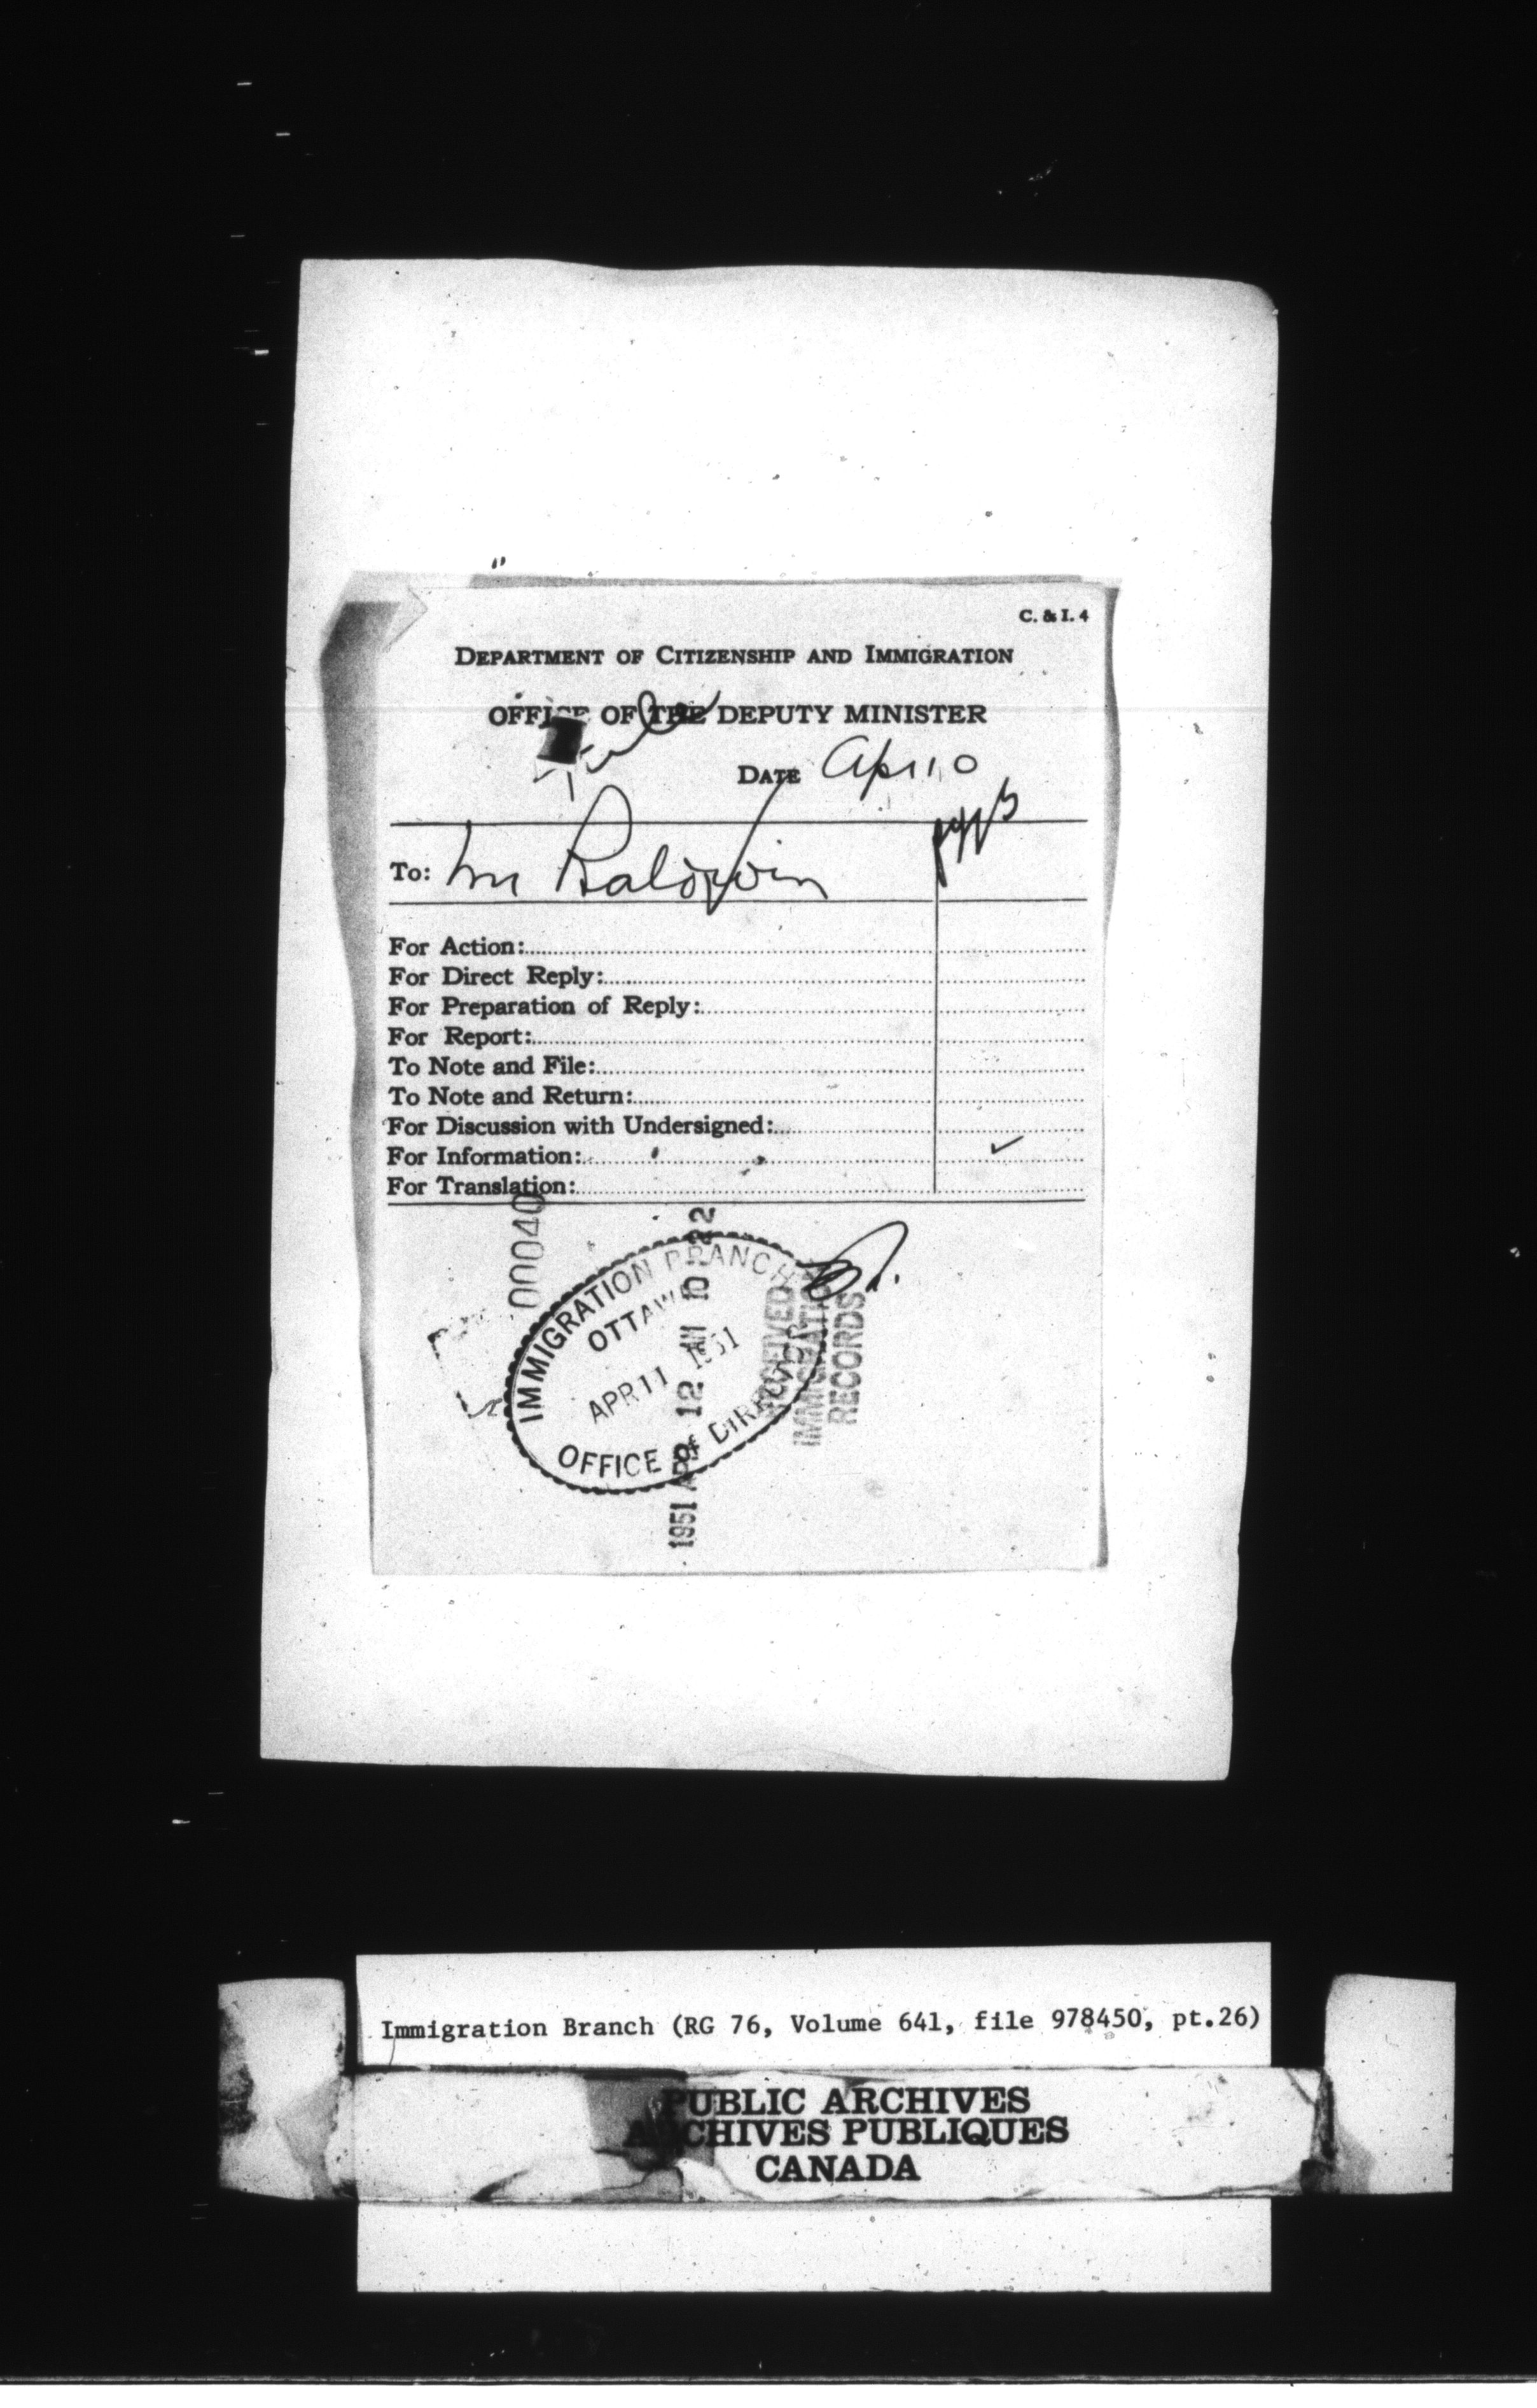 C. & I. 4
DEPARTMENT OF CITIZENSHIP AND IMMIGRATION
OFFICE OF THE DEPUTY MINISTER
File
DATE Apr 10
To: Mr Baldwin
For Action:
For Direct Reply:
For Preparation of Reply:
For Report:
To Note and File:
To Note and Return:
For Discussion with Undersigned:
For Information: ✓
For Translation:
00040
IMMIGRATION BRANCH
OTTAWA
APR 11 1951
OFFICE of DIRECTOR
1951 APR 12 AM 10 22
RECEIVED
IMMIGRATION
RECORDS
Immigration Branch (RG 76, Volume 641, file 978450, pt.26)
PUBLIC ARCHIVES
ARCHIVES PUBLIQUES
CANADA